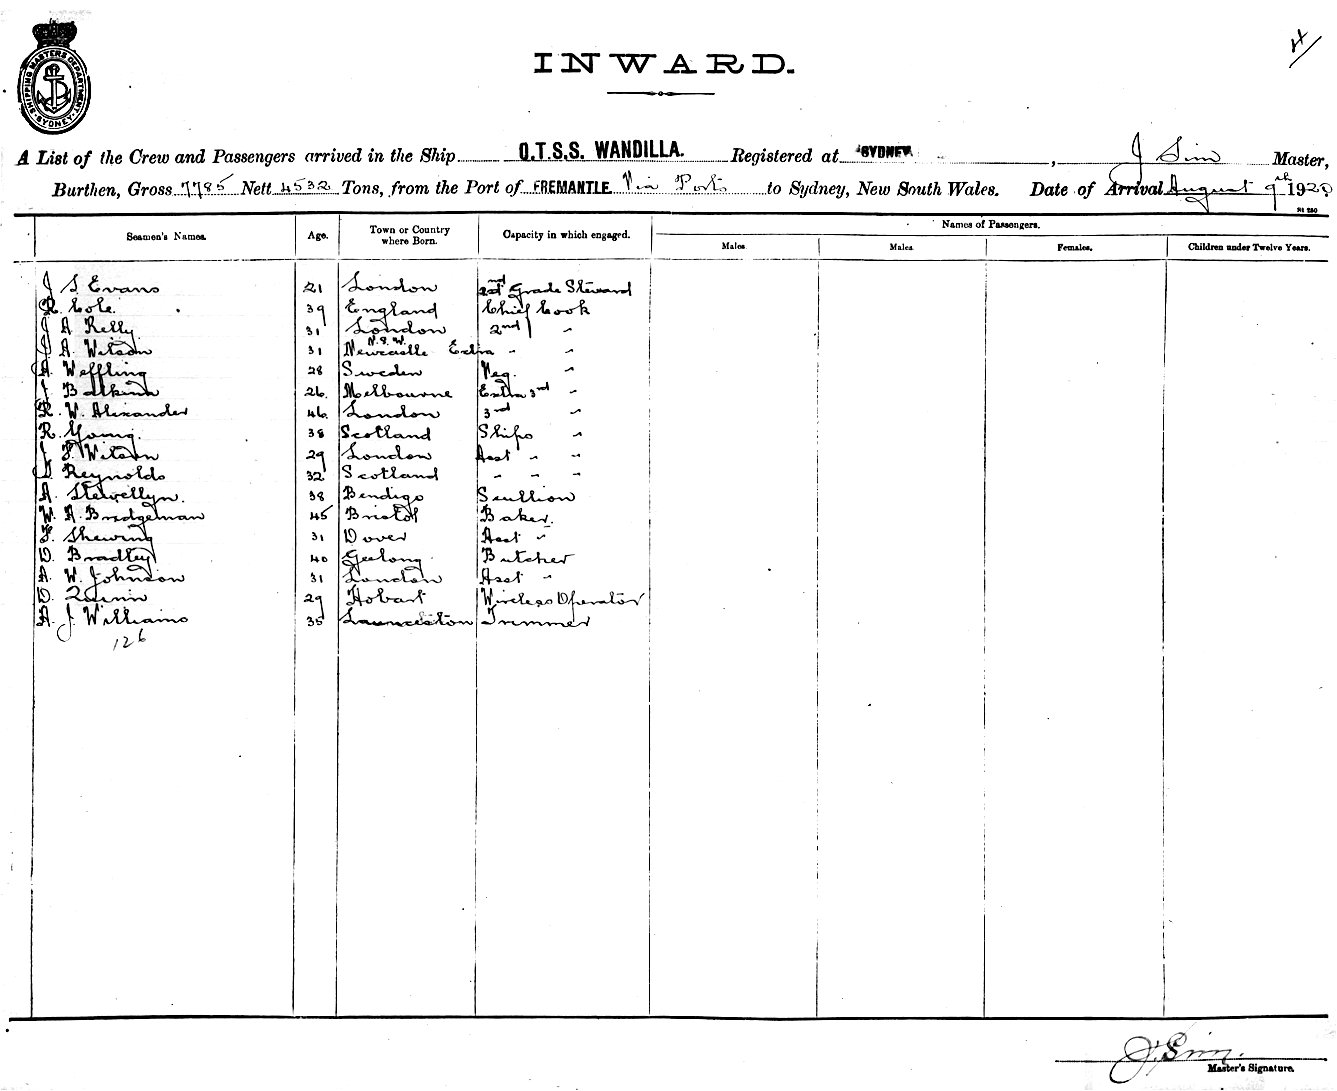 SHIPPING MASTERS DEPARTMENT
SYDNEY
4/
INWARD.
A List of the Crew and Passengers arrived in the Ship Q.T.S.S. WANDILLA. Registered at SYDNEY , J Sim Master,
Burthen, Gross 7785 Nett 4532 Tons, from the Port of FREMANTLE Via Ports to Sydney, New South Wales. Date of Arrival August 9th 1920
Seamen's Names. Age. Town or Country where Born. Capacity in which engaged. Names of Passengers.
Males Males Females. Children under Twelve Years.
J S Evans 21 London 2nd Grade Steward
R. Cole. 39 England Chief Cook
J A Kelly 31 London 2nd "
J A. Wilson 31 Newcastle N.S.W. Extra " "
A. Weffling 28 Sweden Veg. "
J Batkin 26. Melbourne Extra 3rd "
R. W. Alexander 46. London 3rd "
R. Young. 38 Scotland Ships "
J F. Wilson 29 London Asst " "
Reynolds 32 Scotland " " "
A. Stewellyn. 38 Bendigo Scullion
W. A. Bridgeman 45 Bristol Baker.
F. Shewring 31 Dover Asst "
D. Bradley 40 Geelong Butcher
A. W. Johnson 31 London Asst "
D. Quinn 29 Hobart Wireless Operator
A. J. Williams 35 Launceston Trimmer
126
J. Sim.
Master's Signature.